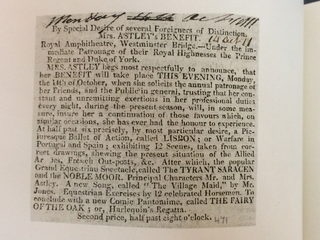 Monday Oct 14 1811
By Special Desire of several Foreigners of Distinction.
Mrs. ASTLEY's BENEFIT. 14 Oct 11
Royal Amphitheatre, Westminster Bridge.—Under the im-
mediate Patronage of their Royal Highnesses the Prince
Regent and Duke of York.
MRS. ASTLEY begs most respectfully to announce, that
her BENEFIT will take place THIS EVENING, Monday,
the 14th of October, when she solicits the annual patronage of
her Friends, and the Public in general, trusting that her con-
stant and unremitting exertions in her professional duties
every night, during the present season, will, in some mea-
sure, insure her a continuation of those favours which, on
similar occasions, she has ever had the honour to experience.
At half past six precisely, by most particular desire, a Pic-
turesque Ballet of Action, called LISBON; or Warfare in
Portugal and Spain; exhibiting 12 Scenes, taken from cor-
rect drawings, shewing the present situation of the Allied
Ar ies, French Out-posts, &c. After which, the popular
Grand Equestrian Spectacle, called The TYRANT SARACEN
and the NOBLE MOOR. Principal Characters Mr. and Mrs.
Astley. A new Song, called "The Village Maid," by Mr.
Jones. Equestrian Exercises by 12 celebrated Horsemen. To
conclude with a new Comic Pantomime, called THE FAIRY
OF THE OAK; or, Harlequin's Regatta.
Second price, half past eight o'clock.